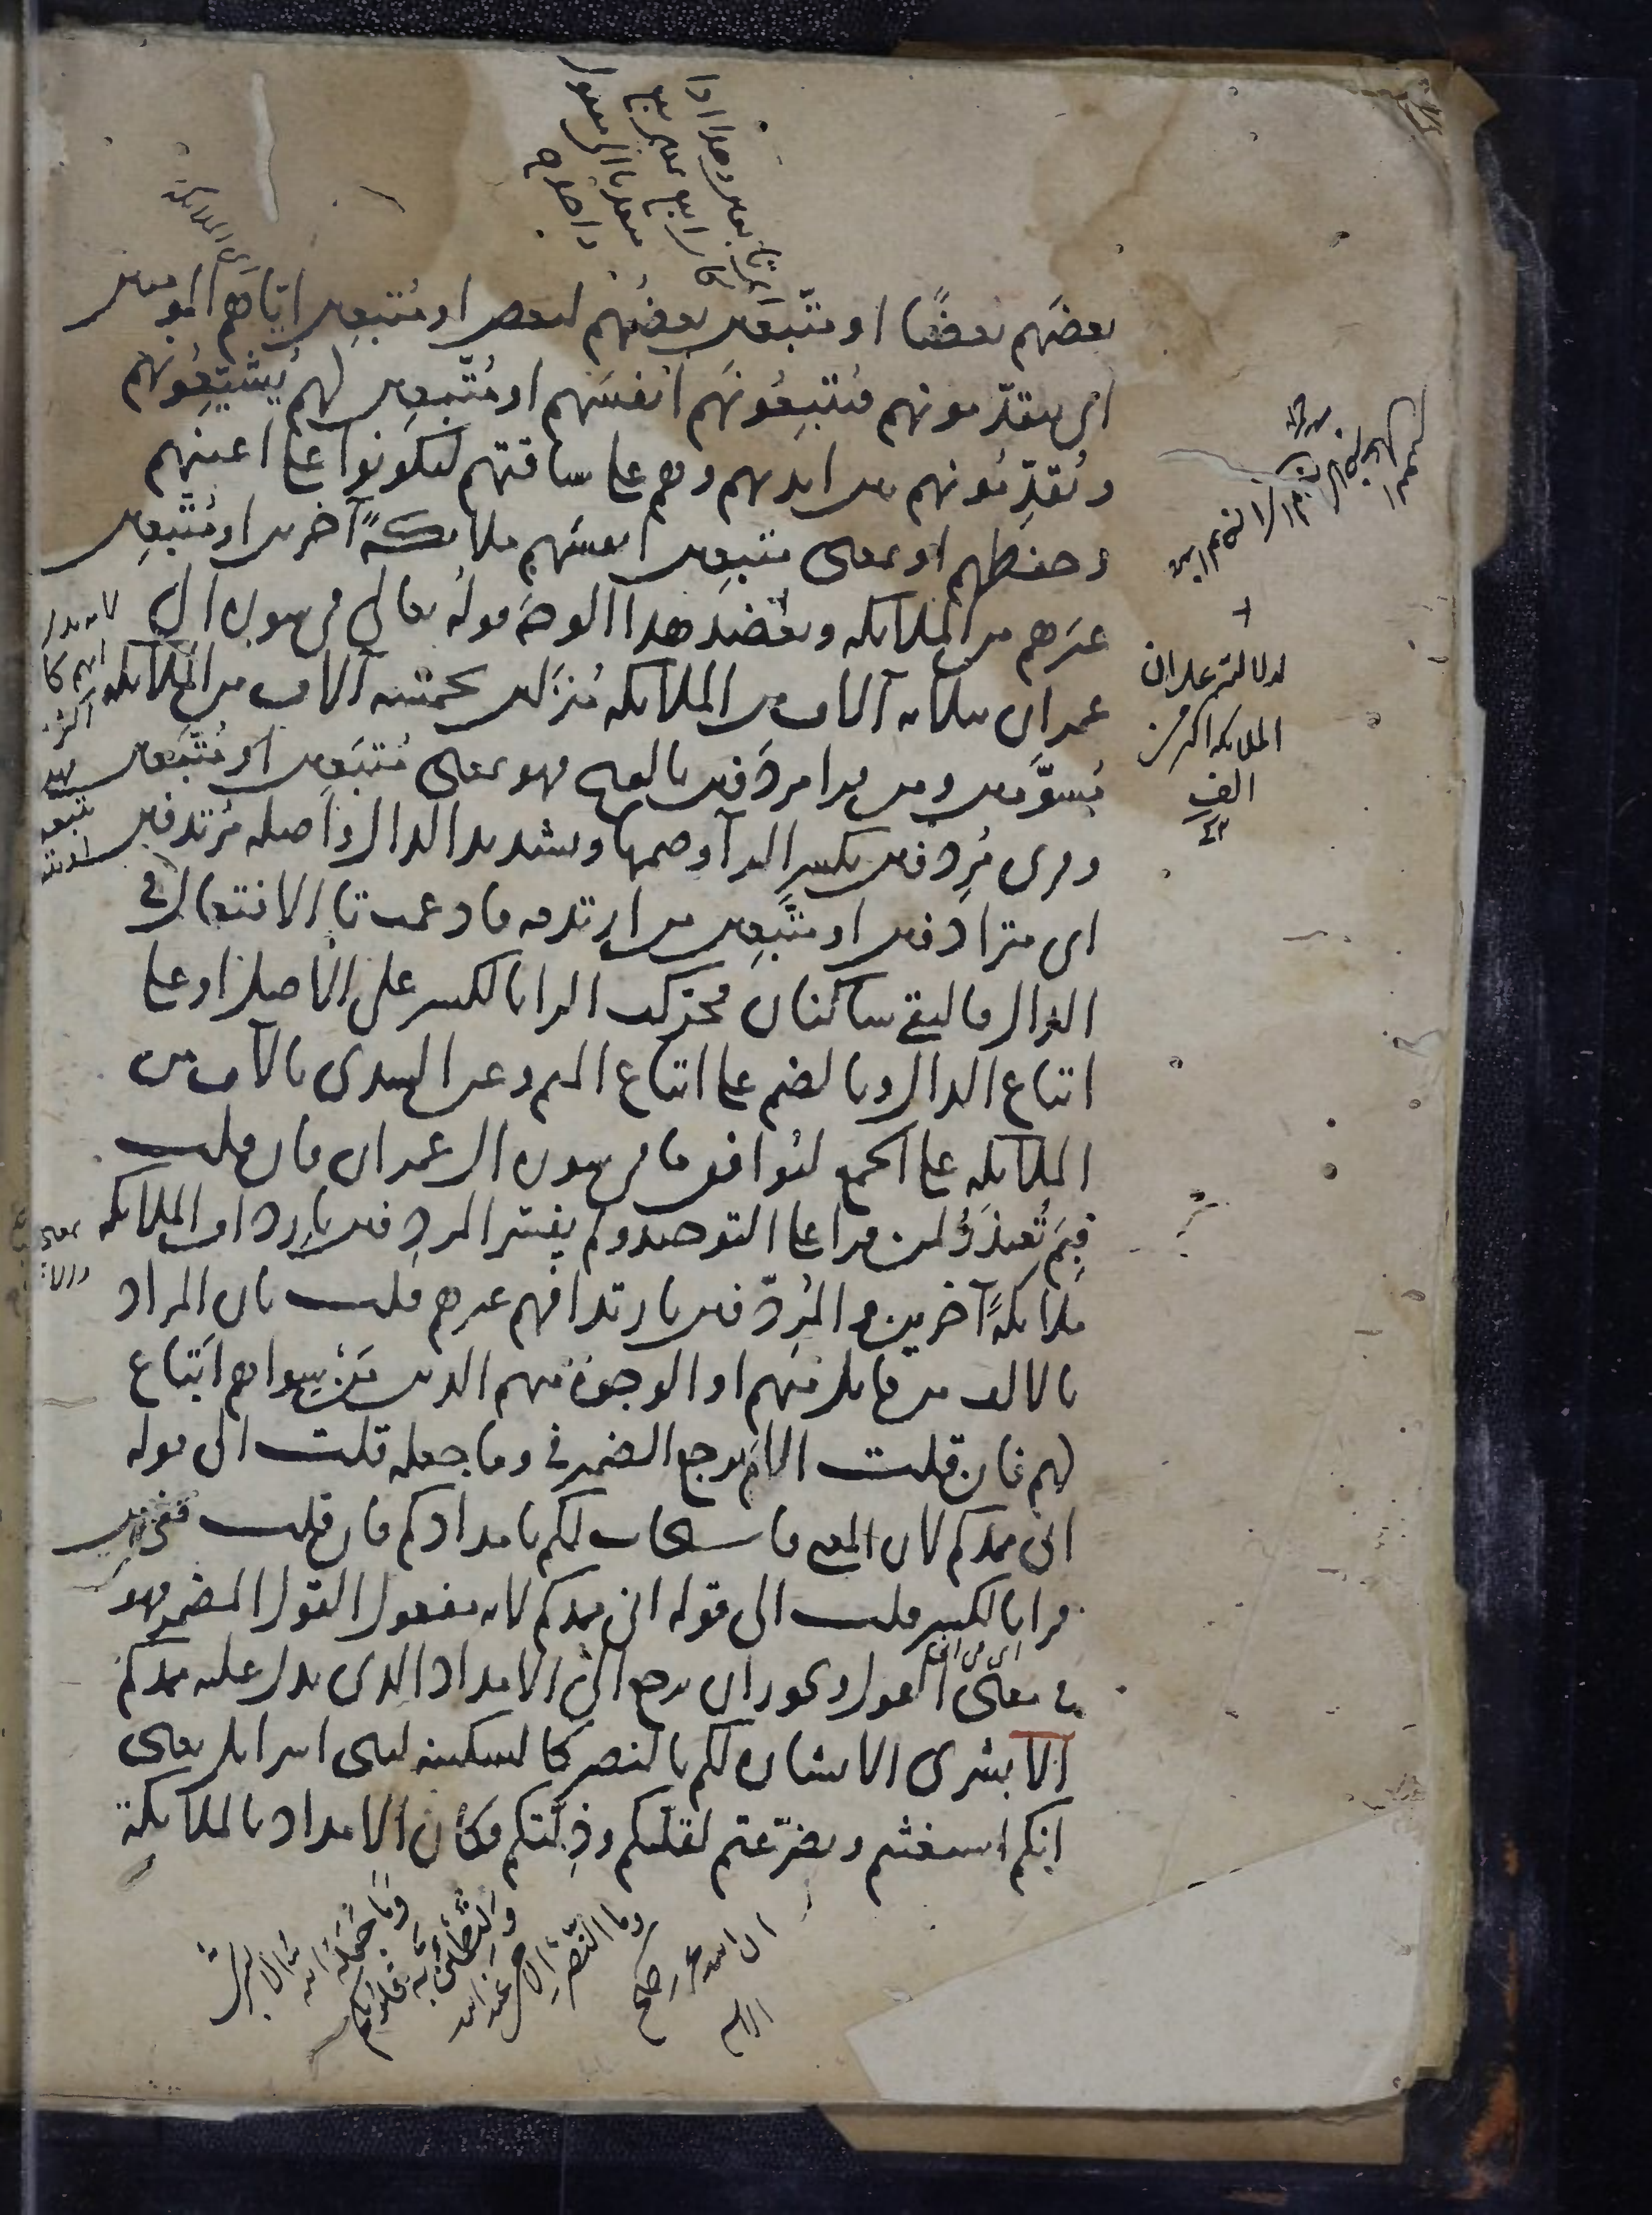 بعضهم بعضًا او متّبعين بعضُهم لبعض او مُتبعين ايّاهم المومنين
اى يتقدّمونهم فيُتبِعُونَهم انفسَهم او مُتّبعين لهم يُشيّعُونهم
ويُقدِّمُونهم بين ايديهم وهم على ساقتهم ليكونوا على اعينهم
وحفظهم او بمعنى متبعين انفسَهم ملائكةً آخرين او مُتْبعِين
غيرهم من الملائكه ويعضد هذا الوجهَ قولُه تعالى فى سوره ال
عمران بثلاثه آلاف من الملائكه مُنزَلين بخمسه آلاف من الملائكه
مُسوَّمين ومن قرا مردَفين بالفتح فهو بمعنى مُتبَعين او مُتَّبَعين
وقرى مُرِدّفين بكسر الرآ وضمها وتشديد الدال واصله مُرتدفين
اى مترادفين او متّبِعين من ارتدفه فادغمت تا الافتعال فى
الدال فالتقى ساكنان فحركت الرا بالكسر على الاصل او على
اتباع الدال وبالضم على اتباع الميم وعن السدى بآلاف من
الملائكه على الجمع ليُوافق ما فى سوره ال عمران فان قلت
فبِمَ يُعتذرُ لمن قرا على التوحيد ولم يفسّر المردِفين بارداف الملائكه
ملائكةً آخرين والمُردّفين بارتدافهم غيرهم قلت بان المراد
بالالف من قاتل منهم او الوجوهُ منهم الذين مَن سِواهم اتباع
لهم فان قلت الامَ يرجع الضمير فى وما جعله قلت الى قوله
انى ممدكم لان المعنى فاستجاب لكم بامدادكم فان قلت ففيمن
قرا بالكسر قلت الى قوله انى ممدكم لانه مفعول القول المضمر فهو
فى معنى القول ويجوز ان يرجع الى الامداد الذى يدل عليه ممدكم
الا بشرى الا بشاره لكم بالنصر كالسكينه لبنى اسرايل يعنى
انكم استغثتم وتضرّعتم لقلتكم وذِلّتكم فكان الامداد بالملائكة
لدلالته على ان
الملائكه اكثر من
الف
وَمَا جَعَلَهُ الله الا بشرى
وَلِتَطْمَئِنَّ بِهِ قلوبكم
وما النّصْرُ اِلا من عند الله
ان الله عزيز حكيم